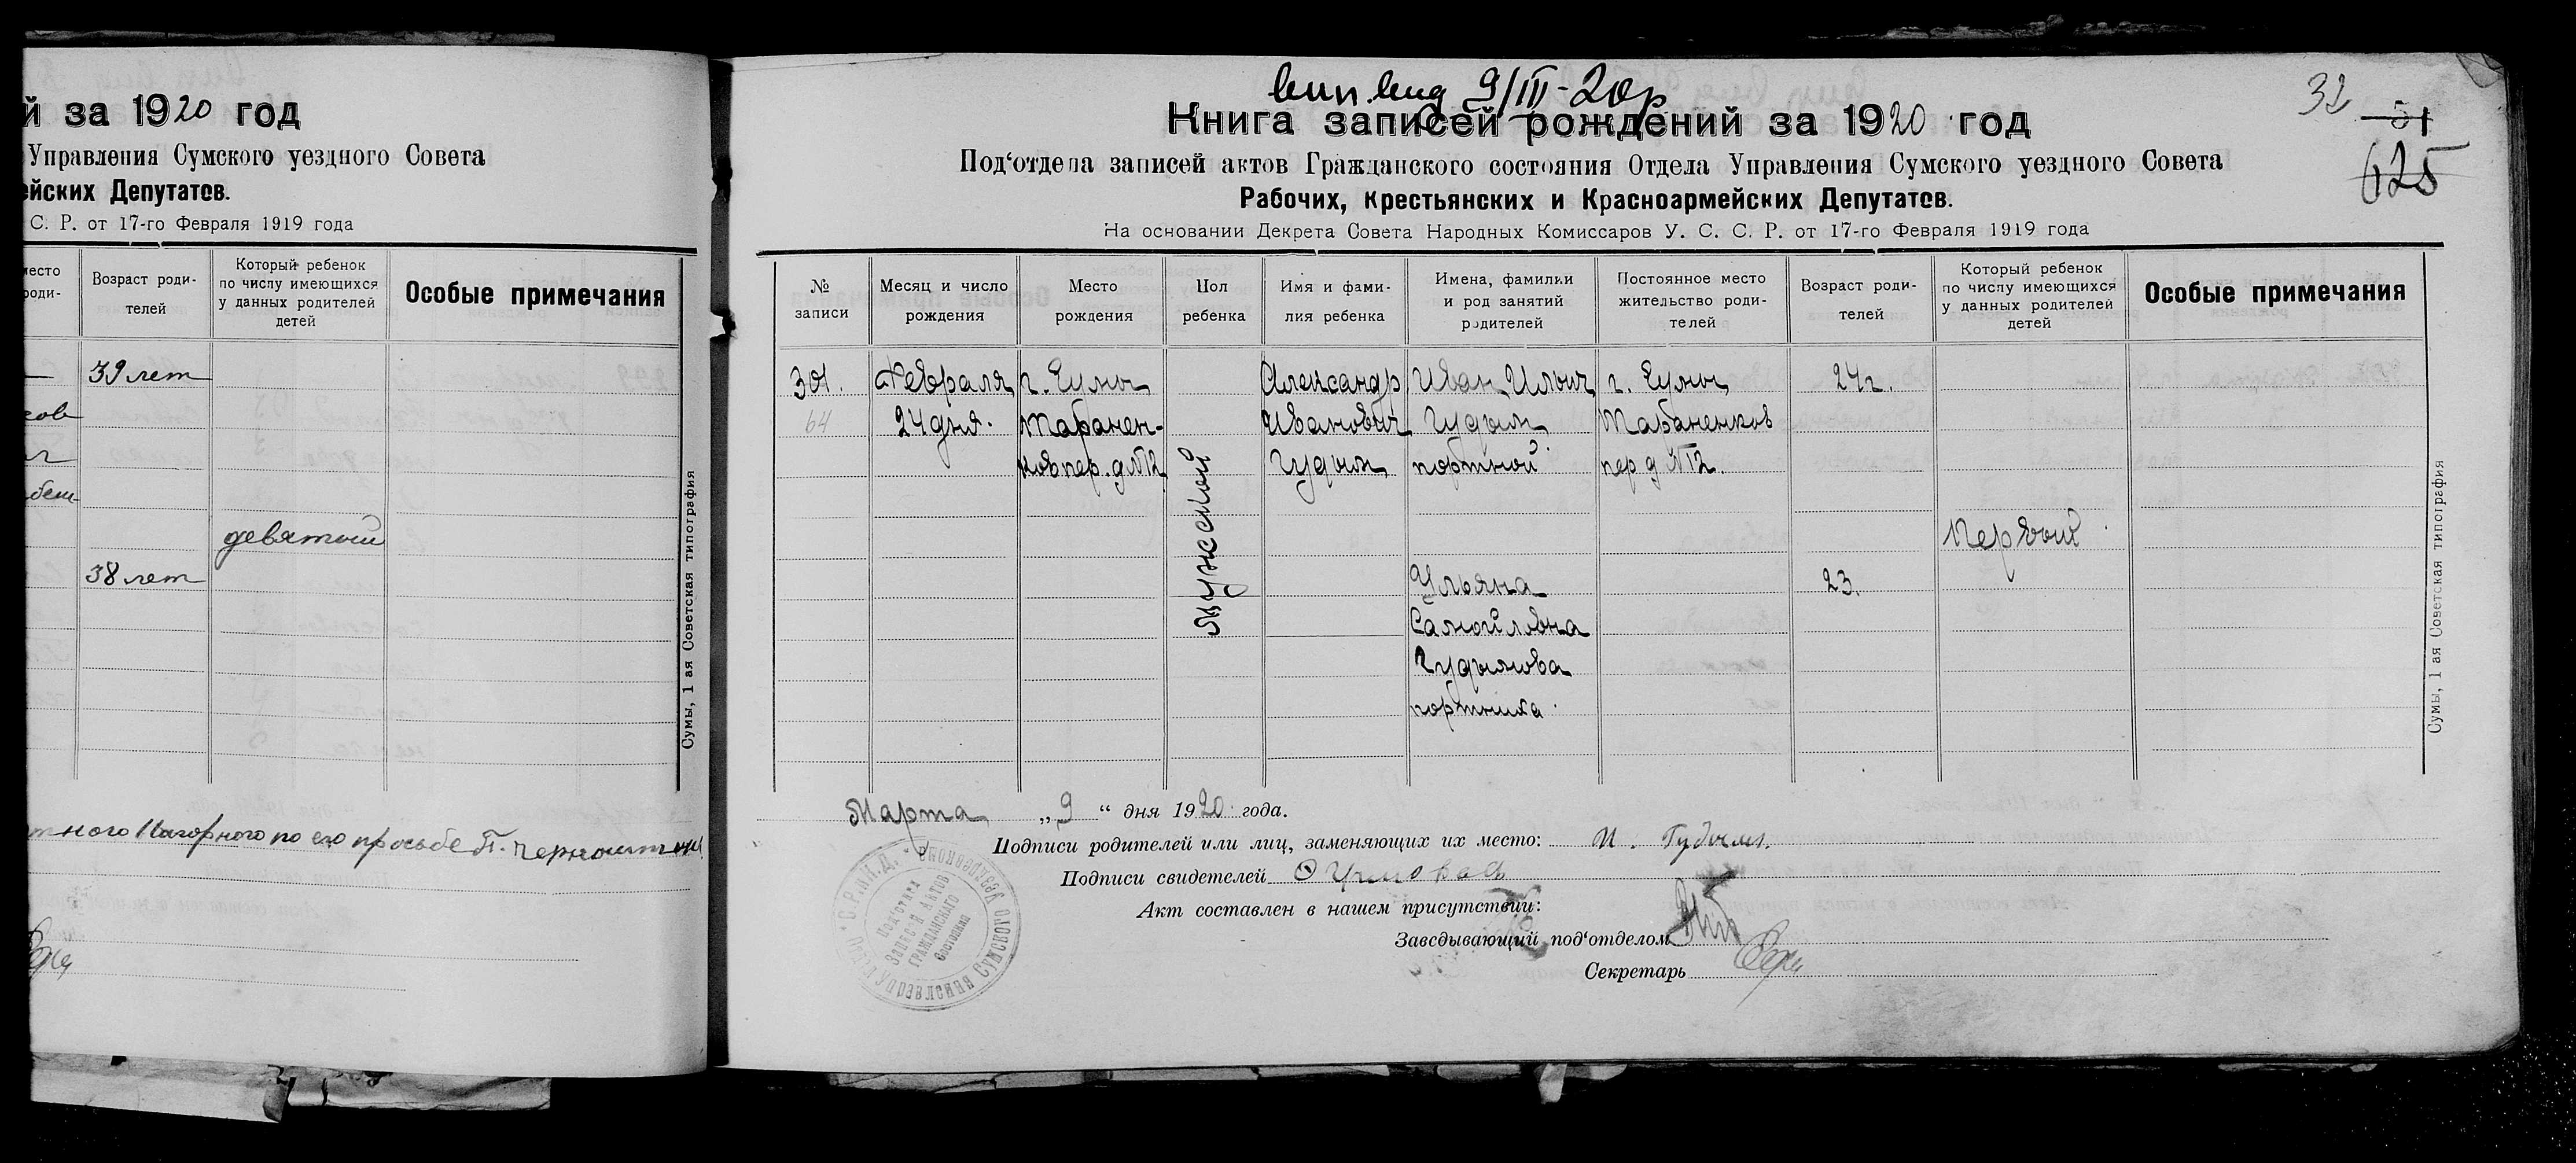 й за 1920 год
Управления Сумского уездного Совета
ейских Депутатов.
С. Р. от 17-го Февраля 1919 года
место роди-
Возраст роди-
телей
Который ребенок
по числу имеющихся
у данных родителей
детей
Особые примечания
39 лет
ков
девятый
38 лет
Сумы, 1 ая Советская типография
Нагорного по его просьбе
вип. вид 9/III-20р
32
51
625
Книга записей рождений за 1920 год
Под‘отдела записей актов Гражданского состояния Отдела Управления Сумского уездного Совета
Рабочих, Крестьянских и Красноармейских Депутатов.
На основании Декрета Совета Народных Комиссаров У. С. С. Р. от 17-го Февраля 1919 года
№
записи
Месяц и число
рождения
Место
рождения
Пол
ребенка
Имя и фами-
лия ребенка
Имена, фамилки
и род занятий
родителей
Постоянное место
жительство роди-
телей
Возраст роди-
телей
Который ребенок
по числу имеющихся
у данных родителей
детей
Особые примечания
301. Февраля г. Сумы Александр Иван Ильич г. Сумы 24 г.
64 24 дня. Табанен- Иванович Гудым Табаненков
ков пер. д № 12 Гудым портной. пер д № 12.
мужской
Первый
Ульяна 23.
Самойловна
Гудымова
портниха.
Сумы, 1 ая Советская типография
Марта „9“ дня 1920 года.
Подписи родителей или лиц, заменяющих их место: И. Гудым.
Подписи свидетелей
Акт составлен в нашем присутствии:
Завсдывающий под‘отделом
Секретарь
Записей Актов
Гражданского
Состояния
Управления Сумского Уездного